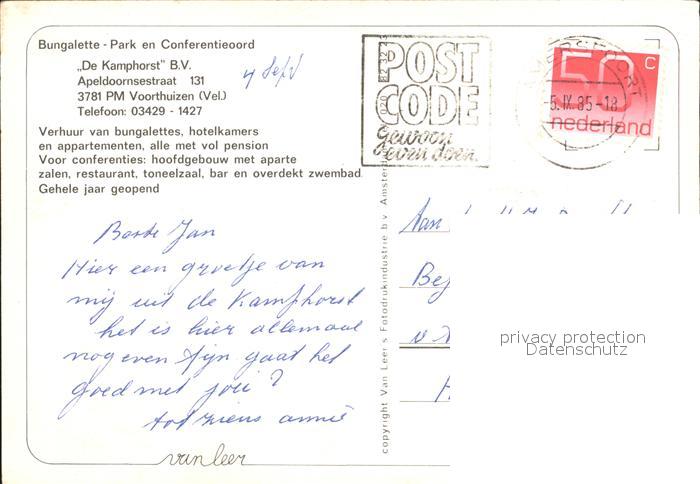 Bungalette - Park en Conferentieoord
„De Kamphorst" B.V.
Apeldoornsestraat 131
3781 PM Voorthuizen (Vel.)
Telefoon: 03429 - 1427
4 Sept
Verhuur van bungalettes, hotelkamers
en appartementen, alle met vol pension
Voor conferenties: hoofdgebouw met aparte
zalen, restaurant, toneelzaal, bar en overdekt zwembad
Gehele jaar geopend
POST
CODE
Gewoon
even doen.
50 c
5.IX.85-18
nederland
Beste Jan
Hier een groetje van
mij uit de Kamphorst
het is hier allemaal
nog even fijn gaat het
goed met jou ?
tot ziens annie
van leer
copyright Van Leer's Fotodrukindustrie b.v. Amster
Aan
privacy protection
Datenschutz